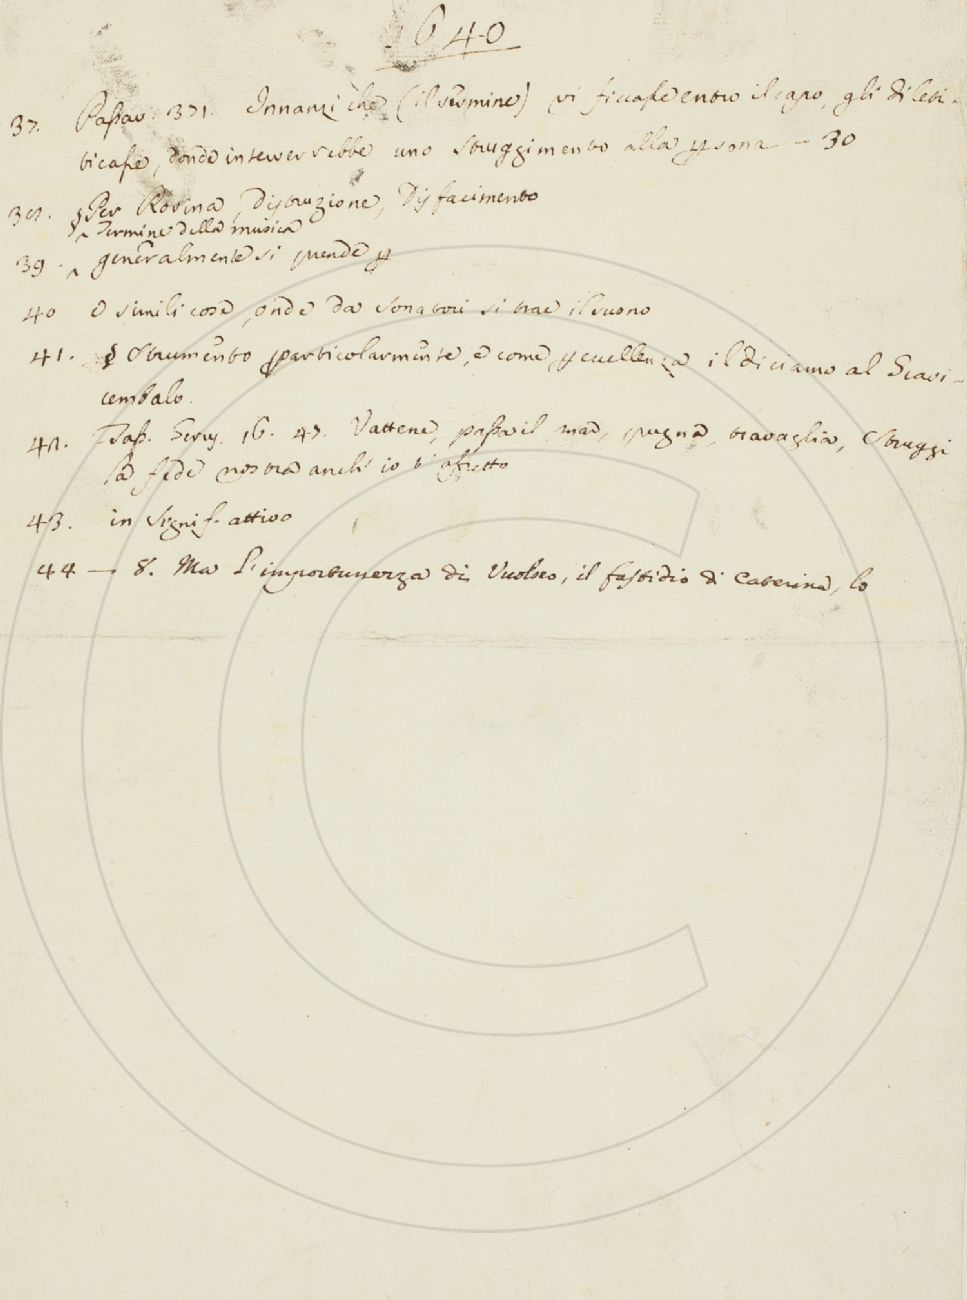 640
37. Passav. 371. Innanzi che (il vermine) vi ficcasse entro il capo, gli dileti-
ticasse, donde interverrebbe uno struggimento alla psona — 30
38. § Per Rovina, Distruzione, Disfacimento
^ Termine della musica
39. ^ generalmente si prende p
40 O simili cose, onde da sonatori si trae il suono
41. § Strumento particolarmente, e come p eccellenza il diciamo al Gravi-
cembalo.
42. Tass. Gerus. 16. 47. Vattene, passa il mar, pugna, travaglia, Struggi
la fede nostra anch' io t'affretto
43. in signif. attivo
44 — 8. Ma l'importunezza di, il fastidio di Caterina, lo